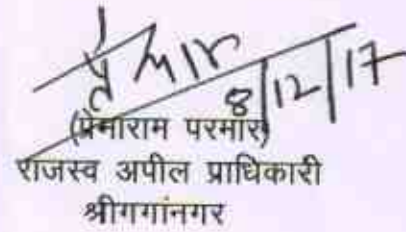 8/12/17
(प्रेमाराम परमार)
राजस्व अपील प्राधिकारी
श्रीगगांनगर